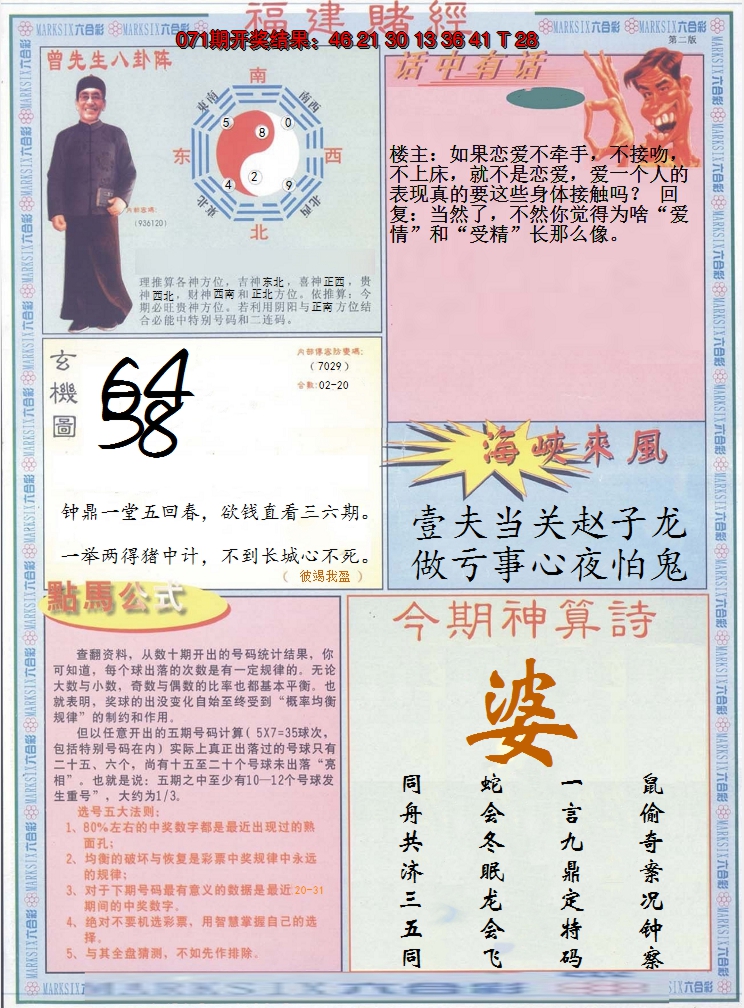 福建賭經
071期开奖结果：46 21 30 13 36 41 T 28
MARKSIX六合彩
第二版
曾先生八卦阵
南
东南
西南
5
8
0
东
西
4
2
9
东北
西北
北
内部密码:
（936120）
理推算各神方位，吉神东北，喜神正西，贵
神西北，财神西南和正北方位。依推算：今
期必旺贵神方位。若利用阴阳与正南方位结
合必能中特别号码和二连码。
话中有话
楼主：如果恋爱不牵手，不接吻，
不上床，就不是恋爱，爱一个人的
表现真的要这些身体接触吗？ 回
复：当然了，不然你觉得为啥“爱
情”和“受精”长那么像。
玄機圖
64
58
（7029）
合数:02-20
钟鼎一堂五回春，欲钱直看三六期。
一举两得猪中计，不到长城心不死。
（ 彼竭我盈 ）
海峽來風
壹夫当关赵子龙
做亏事心夜怕鬼
點馬公式
查翻资料，从数十期开出的号码统计结果，你
可知道，每个球出落的次数是有一定规律的。无论
大数与小数，奇数与偶数的比率也都基本平衡。也
就表明，奖球的出没变化自始至终受到“概率均衡
规律”的制约和作用。
但以任意开出的五期号码计算( 5X7=35球次，
包括特别号码在内）实际上真正出落过的号球只有
二十五、六个，尚有十五至二十个号球未出落“亮
相”。也就是说：五期之中至少有10—12个号球发
生重号”，大约为1/3。
选号五大法则：
1、80%左右的中奖数字都是最近出现过的熟
面孔；
2、均衡的破坏与恢复是彩票中奖规律中永远
的规律；
3、对于下期号码最有意义的数据是最近20-31
期间的中奖数字。
4、绝对不要机选彩票，用智慧掌握自己的选
择。
5、与其全盘猜测，不如先作排除。
今期神算詩
婆
同舟共济三五同
蛇会冬眠龙会飞
一言九鼎定特码
鼠偷奇案况钟察